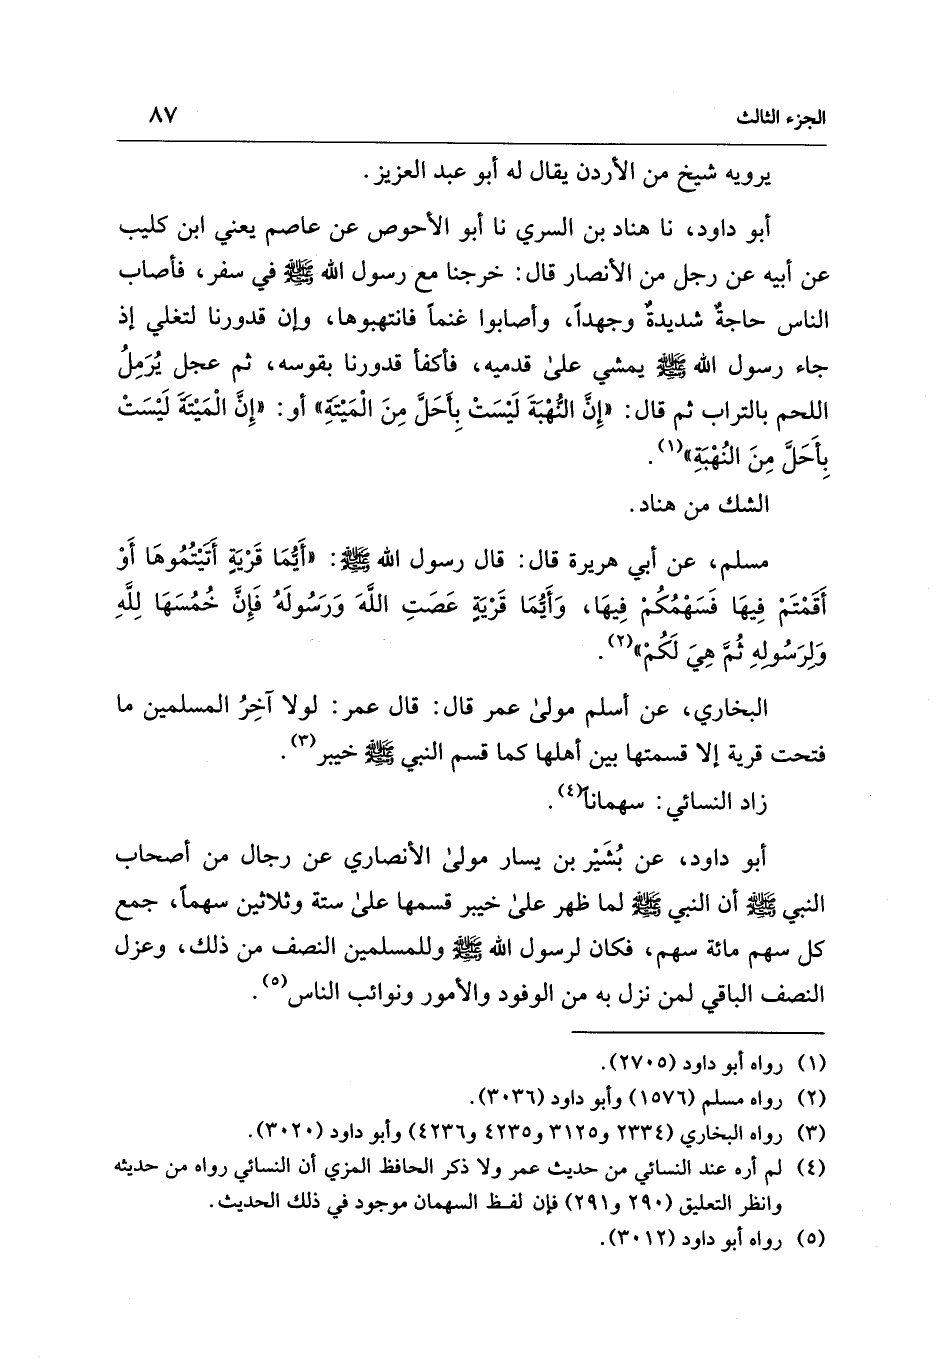 الجزء الثالث ٨٧
يرويه شيخ من الأردن يقال له أبو عبد العزيز.
أبو داود، نا هناد بن السري نا أبو الأحوص عن عاصم يعني ابن كليب
عن أبيه عن رجل من الأنصار قال: خرجنا مع رسول الله ﷺ في سفر، فأصاب
الناس حاجةٌ شديدةٌ وجهداً، وأصابوا غنماً فانتهبوها، وإن قدورنا لتغلي إذ
جاء رسول الله ﷺ يمشي علىٰ قدميه، فأكفأ قدورنا بقوسه، ثم عجل يُرَمِلُ
اللحم بالتراب ثم قال: «إِنَّ النُّهْبَةَ لَيْسَتْ بِأَحَلَّ مِنَ الْمَيْتَةِ» أو: «إِنَّ الْمَيْتَةَ لَيْسَتْ
بِأَحَلَّ مِنَ النُهْبَةِ»(١).
الشك من هناد.
مسلم، عن أبي هريرة قال: قال رسول الله ﷺ: «أَيُّمَا قَرْيَةٍ أَتَيْتُمُوهَا أَوْ
أَقَمْتَمْ فِيهَا فَسَهْمُكُمْ فِيهَا، وَأَيُّمَا قَرْيَةٍ عَصَتِ اللَّهَ وَرَسُولَهُ فَإِنَّ خُمُسَهَا لِلَّهِ
وَلِرَسُولِهِ ثُمَّ هِيَ لَكُمْ»(٢).
البخاري، عن أسلم مولىٰ عمر قال: قال عمر: لولا آخِرُ المسلمين ما
فتحت قرية إلا قسمتها بين أهلها كما قسم النبي ﷺ خيبر(٣).
زاد النسائي: سهماناً(٤).
أبو داود، عن بُشَيْر بن يسار مولىٰ الأنصاري عن رجال من أصحاب
النبي ﷺ أن النبي ﷺ لما ظهر علىٰ خيبر قسمها علىٰ ستة وثلاثين سهماً، جمع
كل سهم مائة سهم، فكان لرسول الله ﷺ وللمسلمين النصف من ذلك، وعزل
النصف الباقي لمن نزل به من الوفود والأمور ونوائب الناس(٥).
(١) رواه أبو داود (٢٧٠٥).
(٢) رواه مسلم (١٥٧٦) وأبو داود (٣٠٣٦).
(٣) رواه البخاري (٢٣٣٤ و٣١٢٥ و٤٢٣٥ و٤٢٣٦) وأبو داود (٣٠٢٠).
(٤) لم أره عند النسائي من حديث عمر ولا ذكر الحافظ المزي أن النسائي رواه من حديثه
وانظر التعليق (٢٩٠ و٢٩١) فإن لفظ السهمان موجود في ذلك الحديث.
(٥) رواه أبو داود (٣٠١٢).